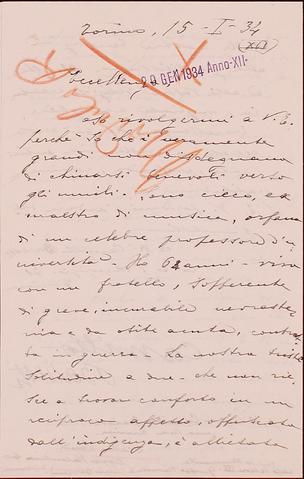 Torino, 15-I-34
(XII)
Eccellenza
20 GEN 1934 Anno-XII-
oso rivolgermi a V. E.
perchè so che i veramente
grandi non disdegnano
di chinarsi benevoli verso
gli umili. Sono cieco, ex
maestro di musica, orfano
di un celebre professore d'u
niversità - Ho 62 anni - vivo
con un fratello, sofferente
di grave, incurabile nevraste
nia e da otite acuta, contrat
ta in guerra - La nostra triste
solitudine a due - che non rie
sce a trovar conforto in un
reciproco affetto, offuscato
dall'indigenza, è allietata